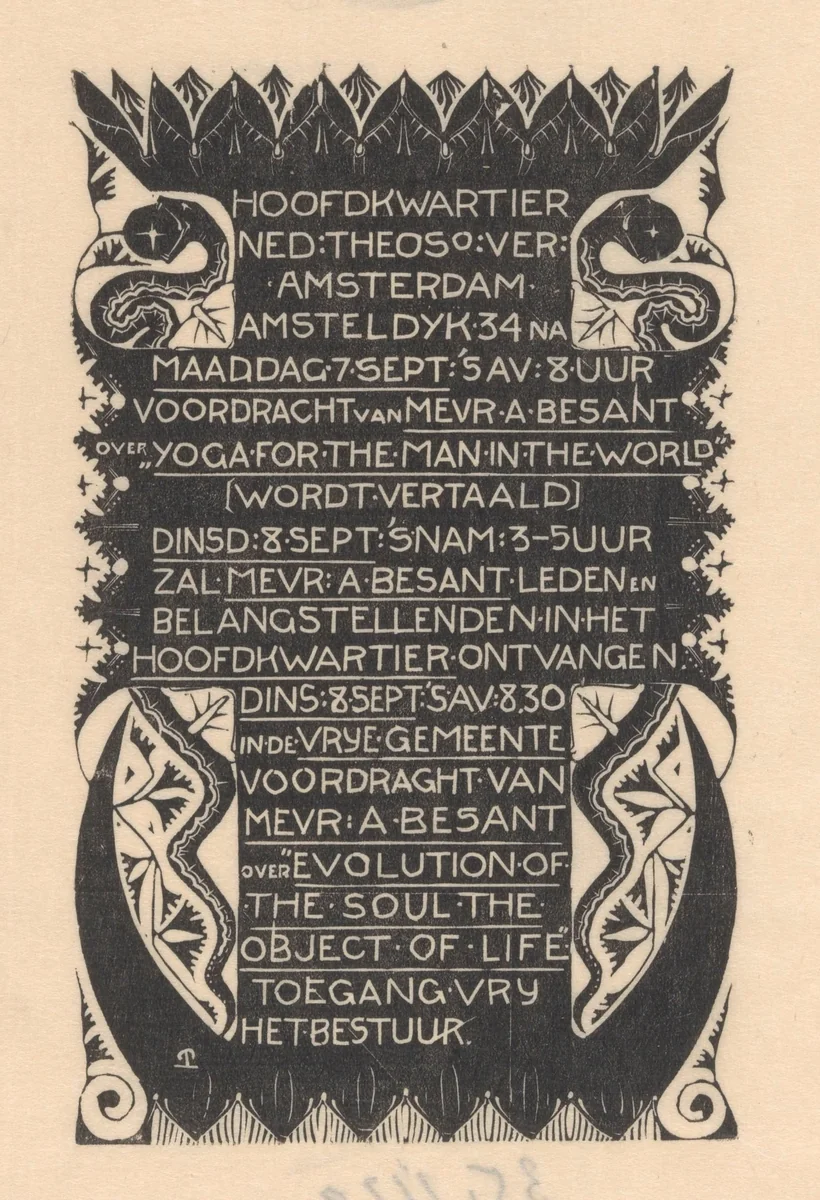 HOOFDKWARTIER
NED:THEOSO:VER:
·AMSTERDAM·
AMSTELDYK·34 NA
MAANDAG·7·SEPT:'S AV:8·UUR
VOORDRACHT VAN MEVR·A·BESANT
OVER „YOGA·FOR·THE·MAN·IN·THE·WORLD"
(WORDT·VERTAALD)
DINSD:8·SEPT:'S·NAM:3-5UUR
ZAL·MEVR:A·BESANT·LEDEN EN
BELANGSTELLENDEN·IN·HET
HOOFDKWARTIER·ONTVANGEN.
DINS:8.SEPT:'S·AV:8.30
IN·DE·VRYE·GEMEENTE
VOORDRAGHT·VAN
MEVR:A·BESANT
OVER "EVOLUTION·OF·
·THE·SOUL·THE·
OBJECT·OF·LIFE"
TOEGANG·VRY
HET·BESTUUR.